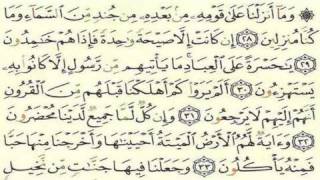 ۞ وَمَآ أَنزَلْنَا عَلَىٰ قَوْمِهِۦ مِنۢ بَعْدِهِۦ مِن جُندٍ مِّنَ ٱلسَّمَآءِ وَمَا
كُنَّا مُنزِلِينَ ٢٨ إِن كَانَتْ إِلَّا صَيْحَةً وَٰحِدَةً فَإِذَا هُمْ خَٰمِدُونَ
٢٩ يَٰحَسْرَةً عَلَى ٱلْعِبَادِ مَا يَأْتِيهِم مِّن رَّسُولٍ إِلَّا كَانُوا۟ بِهِۦ
يَسْتَهْزِءُونَ ٣٠ أَلَمْ يَرَوْا۟ كَمْ أَهْلَكْنَا قَبْلَهُم مِّنَ ٱلْقُرُونِ
أَنَّهُمْ إِلَيْهِمْ لَا يَرْجِعُونَ ٣١ وَإِن كُلٌّ لَّمَّا جَمِيعٌ لَّدَيْنَا مُحْضَرُونَ
٣٢ وَءَايَةٌ لَّهُمُ ٱلْأَرْضُ ٱلْمَيْتَةُ أَحْيَيْنَٰهَا وَأَخْرَجْنَا مِنْهَا حَبًّا
فَمِنْهُ يَأْكُلُونَ ٣٣ وَجَعَلْنَا فِيهَا جَنَّٰتٍ مِّن نَّخِيلٍ